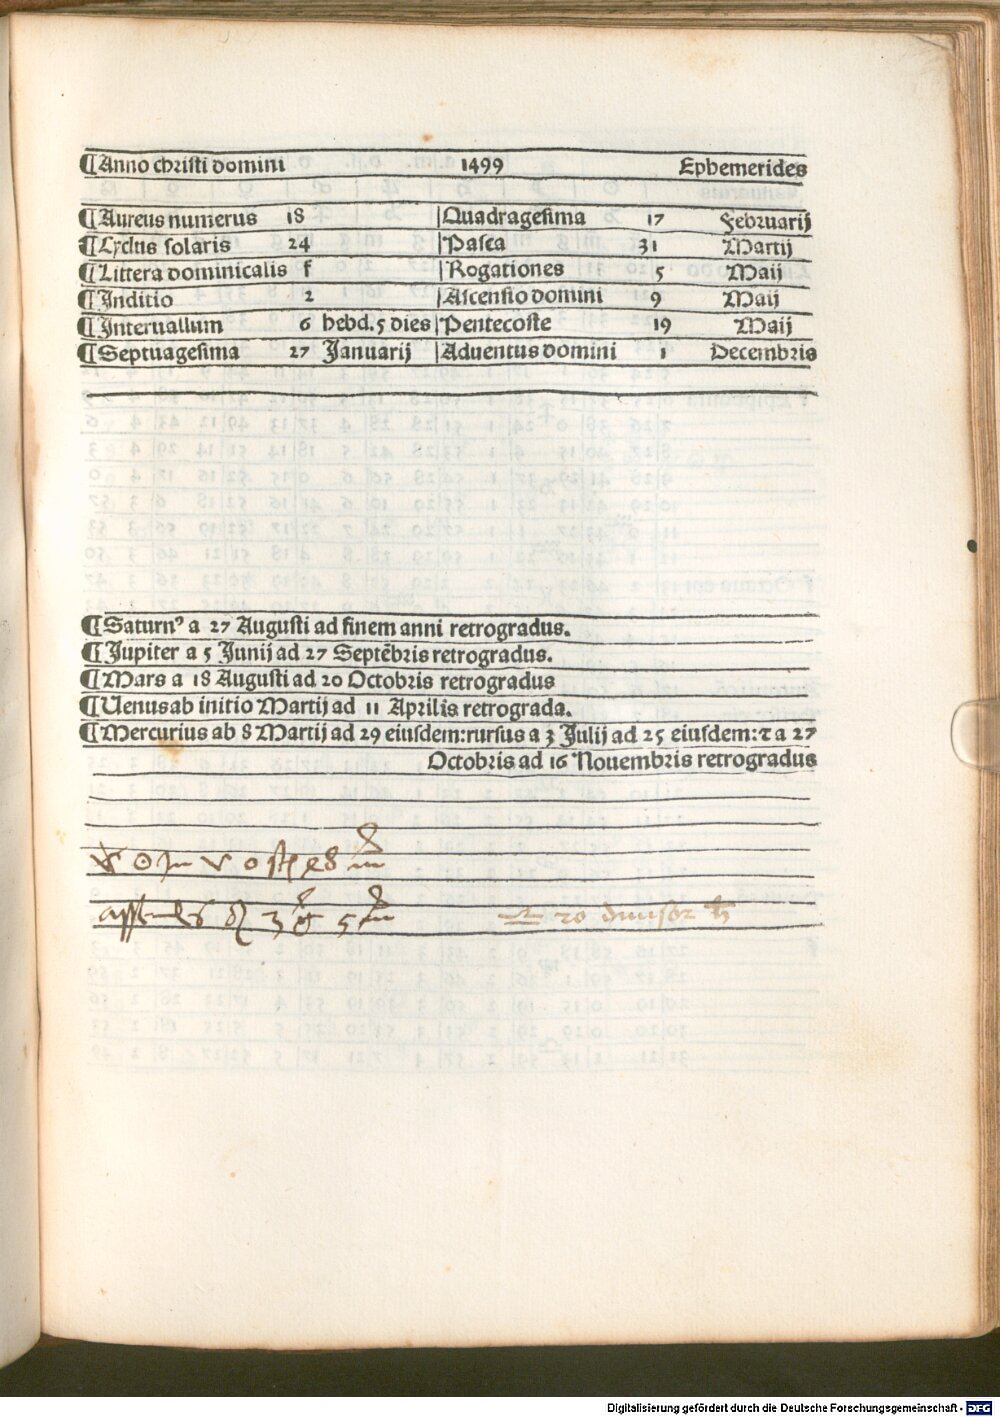 ¶Anno christi domini 1499 Ephemerides
¶Aureus numerus 18 |Quadragesima 17 Februarij
¶Cyclus solaris 24 |Pasca 31 Martij
¶Littera dominicalis f |Rogationes 5 Maij
¶Inditio 2 |Ascensio domini 9 Maij
¶Interuallum 6 hebd. 5 dies |Pentecoste 19 Maij
¶Septuagesima 27 Januarij |Aduentus domini 1 Decembris
¶Saturnꝰ a 27 Augusti ad finem anni retrogradus.
¶Jupiter a 5 Junij ad 27 Septēbris retrogradus.
¶Mars a 18 Augusti ad 20 Octobris retrogradus
¶Uenus ab initio Martij ad 11 Aprilis retrograda.
¶Mercurius ab 8 Martij ad 29 eiusdem: rursus a 3 Julij ad 25 eiusdem: ⁊ a 27
Octobris ad 16 Nouembris retrogradus
♎ 20 diuisor ♄
Digitalisierung gefördert durch die Deutsche Forschungsgemeinschaft - DFG